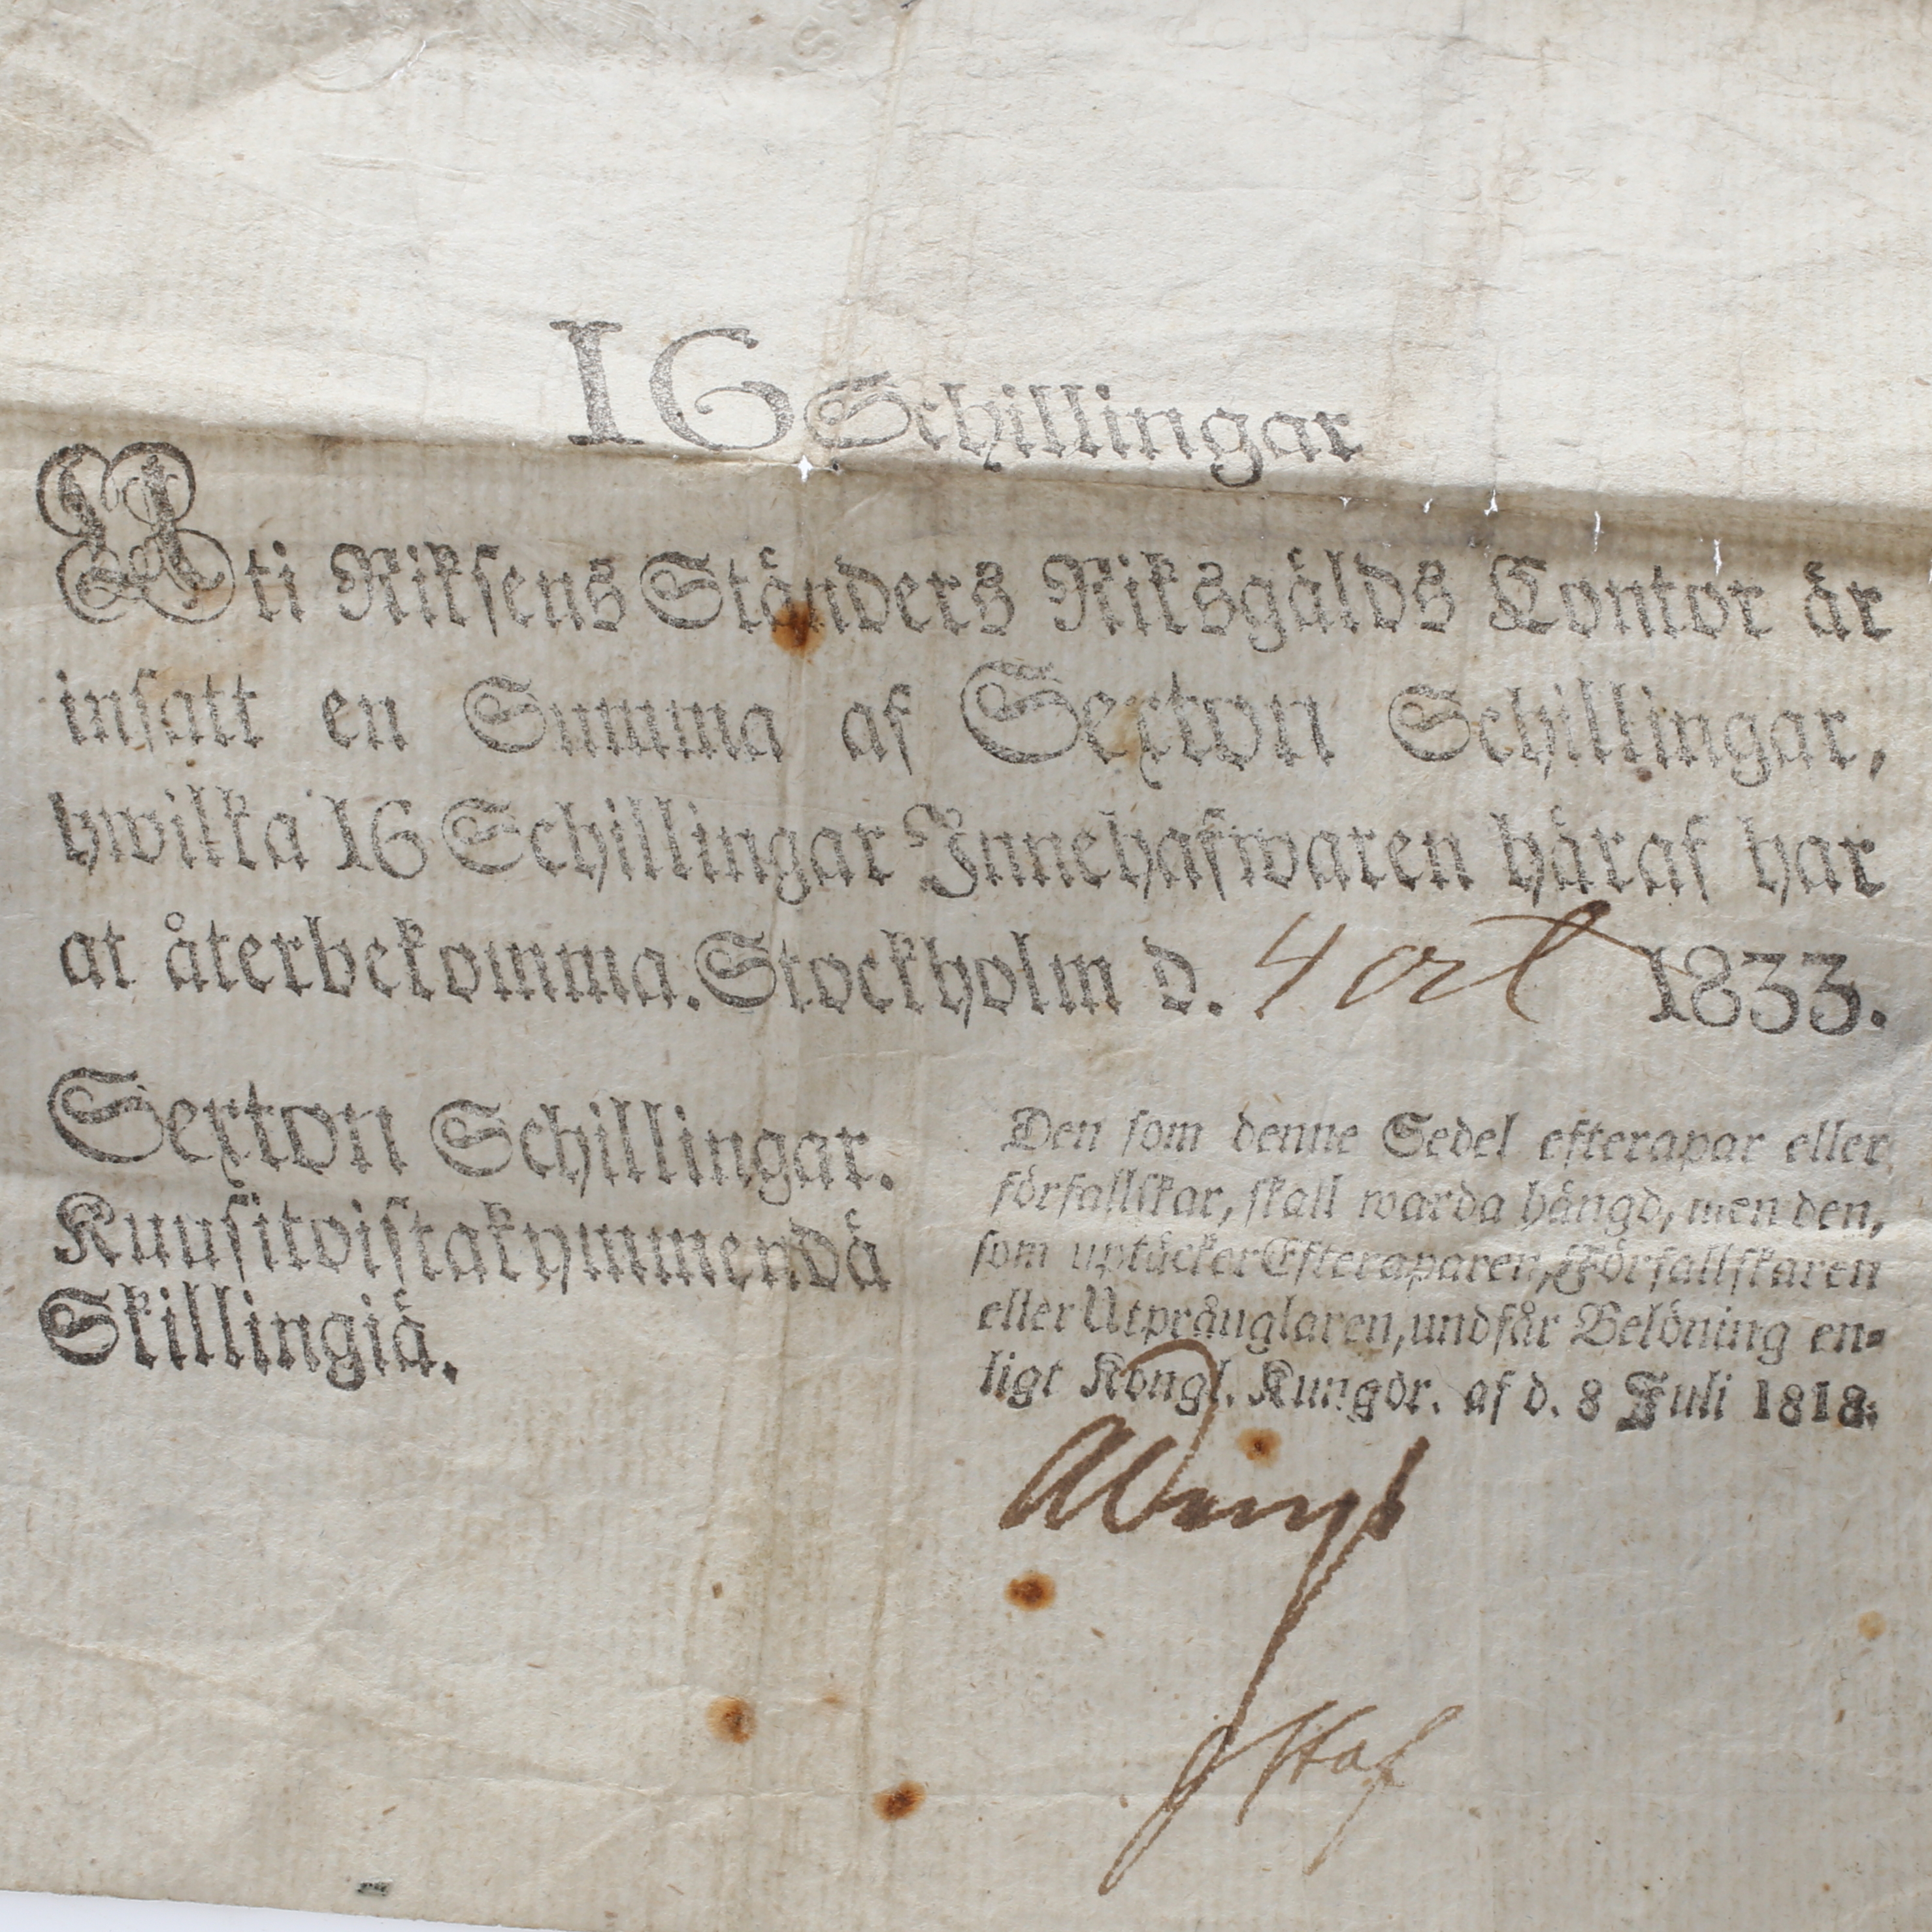 16 Schillingar
Uti Riksens Ständers Riksgälds Kontor är
insatt en Summa af Sexton Schillingar,
hwilka 16 Schillingar Innehafwaren häraf har
at återbekomma. Stockholm d. 4 1833.
Sexton Schillingar.
Kuusitoistakymmendä
Skillingiä.
Den som denne Sedel efterapar eller
förfallskar, skall warda hängd, men den,
som uptäcker Efteraparen, Förfallskaren
eller Utprånglaren, undfår Belöning en-
ligt Kongl. Kungör. af d. 8 Juli 1818.